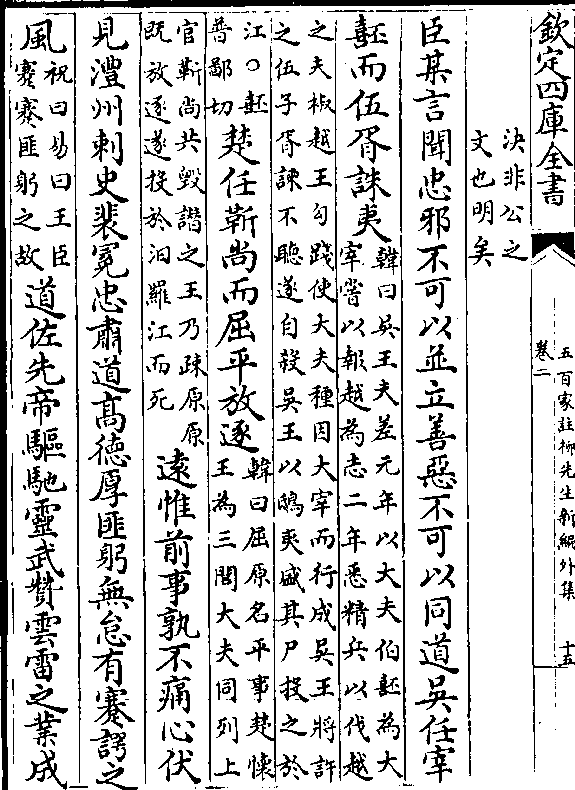 欽定四庫全書
卷二
五百家註柳先生新編外集
十五
決非公之
文也明矣
臣某言聞忠邪不可以並立善惡不可以同道吳任宰
嚭而伍胥誅夷
韓曰吳王夫差元年以大夫伯嚭為大
宰嘗以報越為志二年悉精兵以伐越
之夫椒越王勾踐使大夫種因大宰而行成吳王將許
之伍子胥諫不聽遂自殺吳王以鴟夷盛其尸投之於
江〇嚭
普鄙切
楚任靳尚而屈平放逐
韓曰屈原名平事楚懷
王為三閭大夫同列上
官靳尚共毁譖之王乃疎原原
既放逐遂投於汨羅江而死
遠惟前事孰不痛心伏
見澧州刺史裴冕忠肅道高德厚匪躬無怠有蹇諤之
風
祝曰易曰王臣
蹇蹇匪躬之故
道佐先帝驅馳靈武贊雲雷之業成